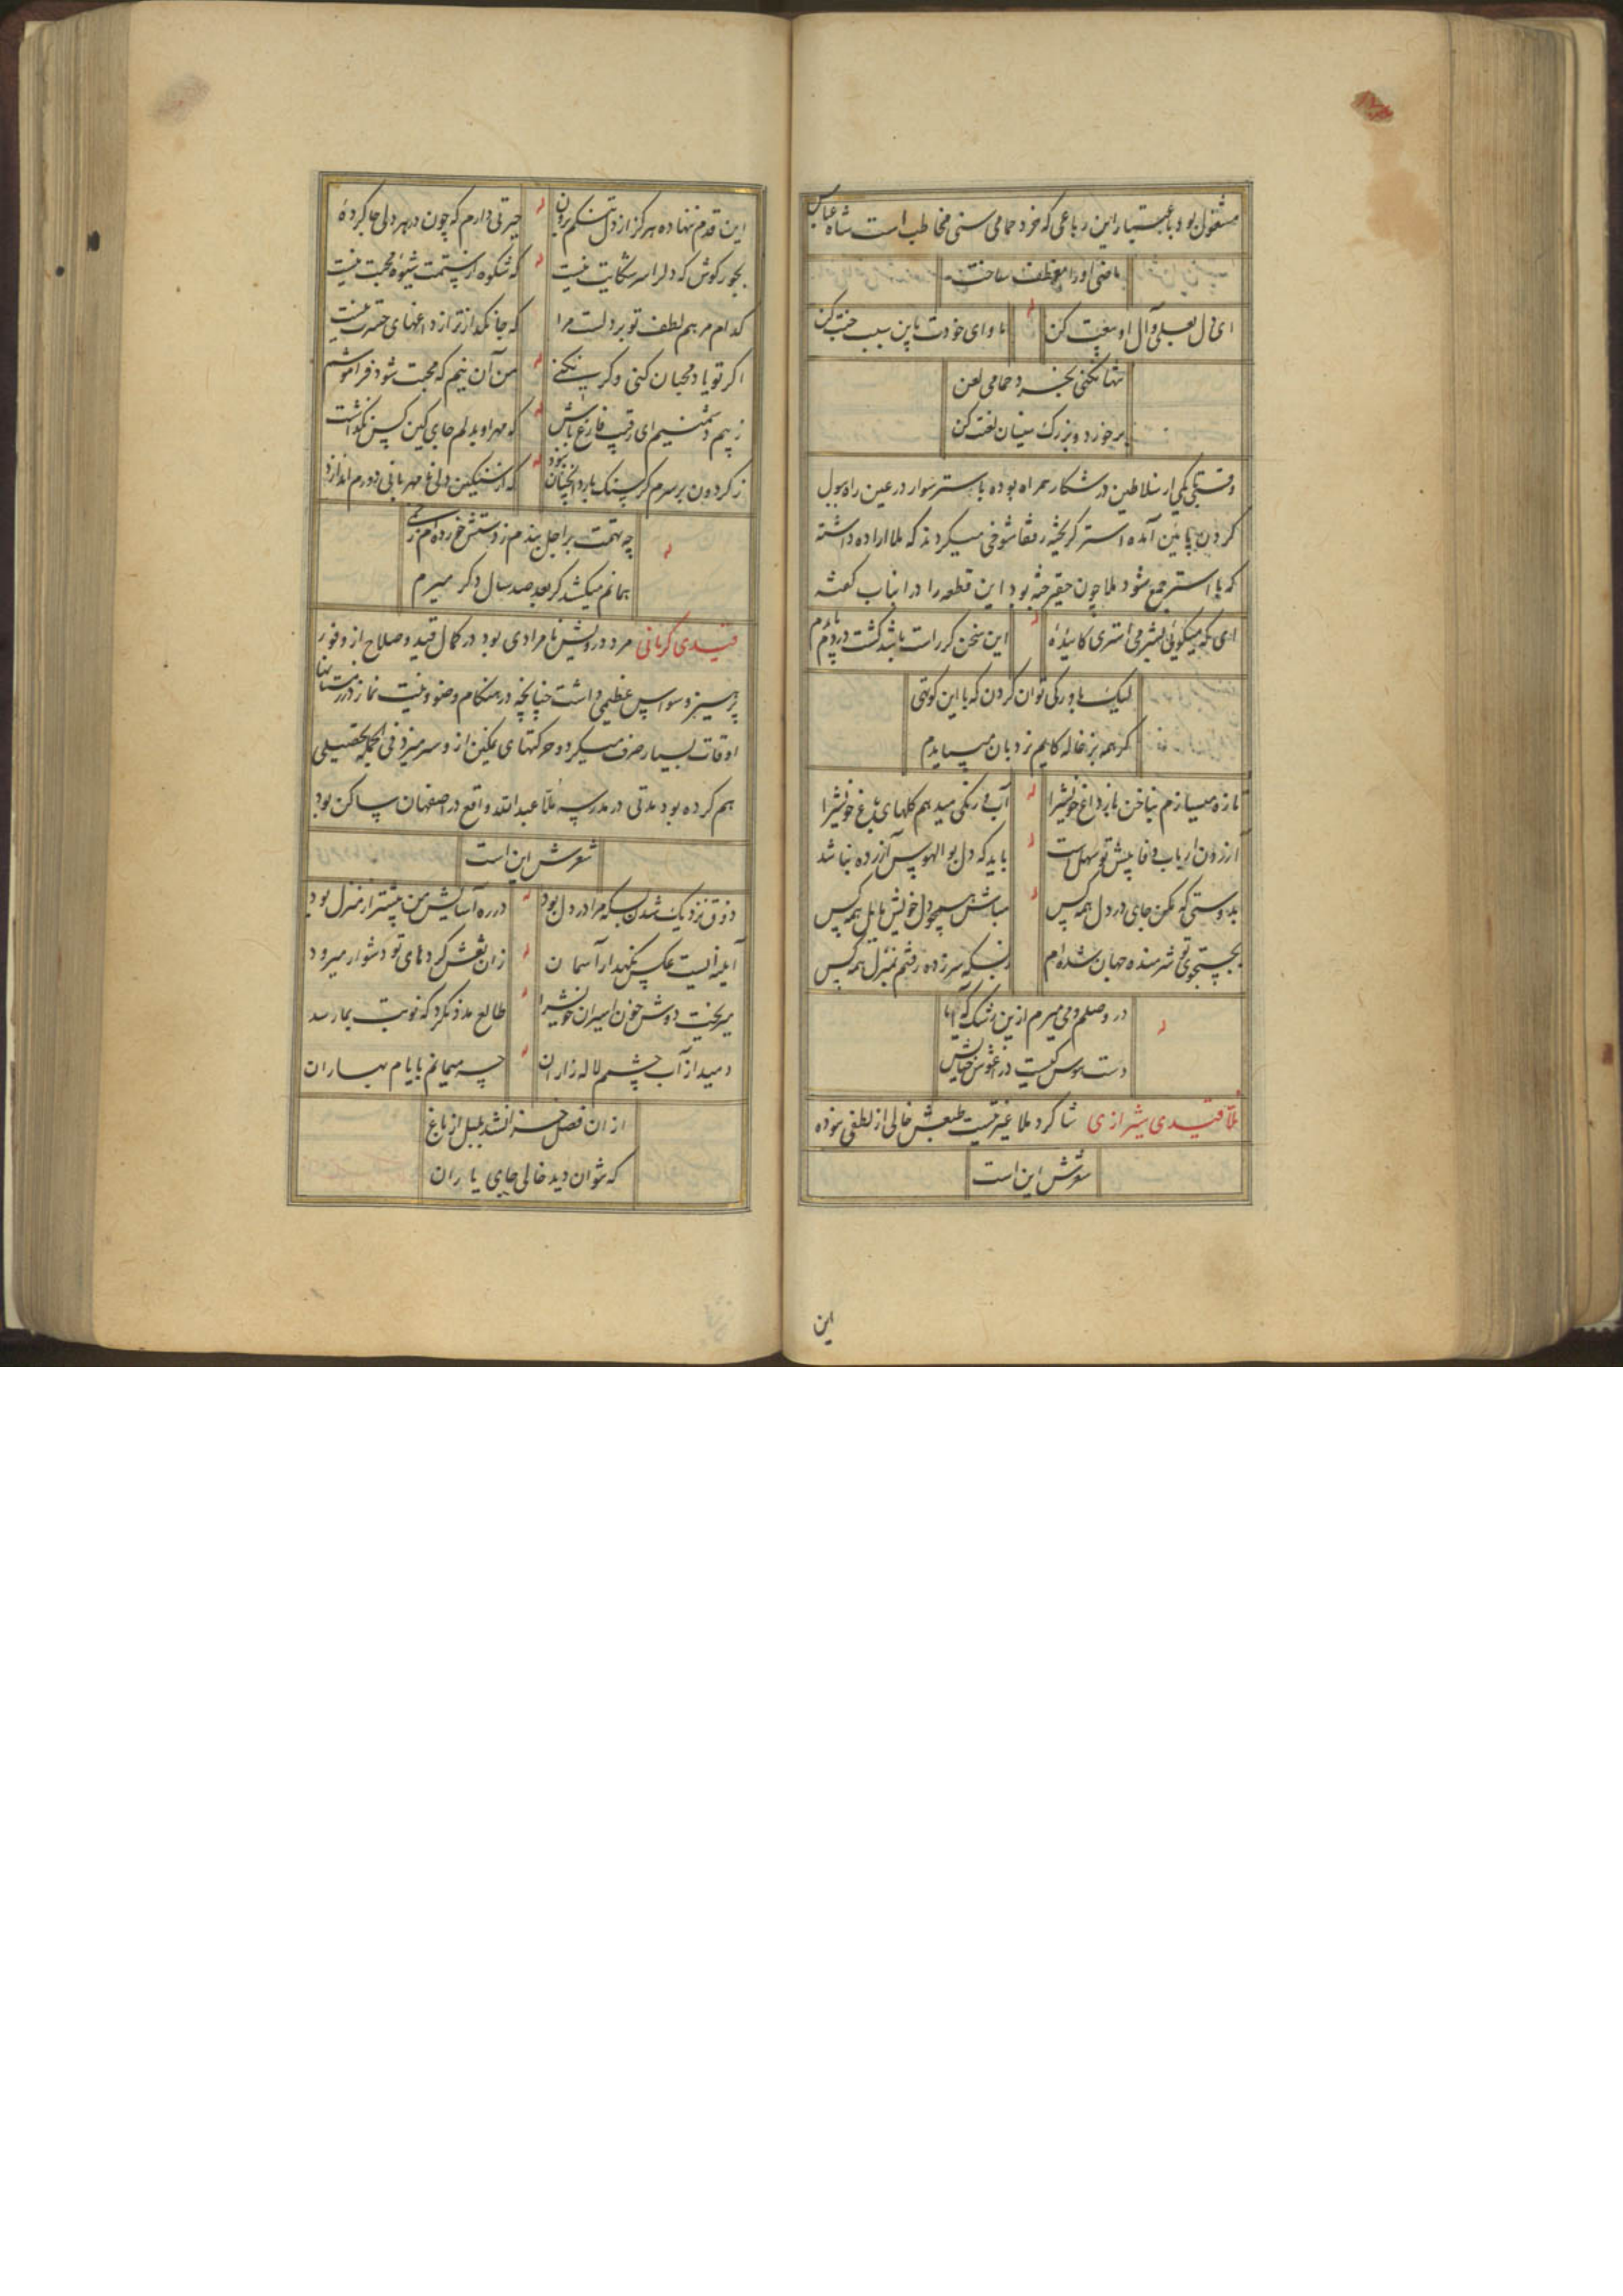 مشغول بود باعتبار این رباعی که خرد حمامی سنی مخاطب است شاه عباس
ماضی او را موظف ساخت
ای دل بعلی و آل او بیعت کن
ماوای خودت باین سبب جنت کن
تنها نکنی بخرد حمامی لعن
بر خورد و بزرگ سنیان لعنت کن
وقتی یکی از سلاطین در شکار همراه بوده با ستر سوار در عین راه ببول
کردن پائین آمده استر گریخته رفقا شوخی میکردند که ملا اراده داشته
که با استر جمع شود ملا چون حقیر جثه بود این قطعه را در انباب گفته
ای که میگوئی بشرمی استری گائیدهٔ
این سخن گر راست باشد گشت در مردم
لیک باور کی توان کردن که با این کوتهی
گر همه بزغاله گایم نردبان میبایدم
تازه میسازم بناخن باز داغ خویشرا
آب و رنگی میدهم گلهای باغ خویشرا
آزردن ارباب وفا پیش تو سهل است
باید که دل بوالهوس آزرده نباشد
بدوستی که مکن جای در دل همه کس
مباش همچو دل خویش مایل همه کس
بجستجوی تو شرمنده جهان شده‌ام
ز بسکه سرزده رفتم بمنزل همه کس
در وصلم و می میرم ازین رشک که آیا
دست هوس کیست در آغوش خیالش
ملا قیدی شیرازی شاگرد ملا غیرتیست طبعش خالی از لطفی نبوده
شعرش این است
این
این قدم ننهاده هرگز از دل تنگم برون
حیرتی دارم که چون در هر دلی جا کردهٔ
بجور کوش که دلرا سر شکایت نیست
که شکوه از ستمت شیوهٔ محبت نیست
کدام مرهم لطف تو بر دلست مرا
که جانگدازتر از داغهای حسرت نیست
اگر تو یاد محبان کنی و گر نکنی
من آن نیم که محبت شود فراموشم
ز بیم دشمنیم ای رقیب فارغ باش
که مهر او بدلم جای کین کس نگذاشت
ز گردون بر سرم گر سنگ بارد آنچنان نبود
که از سنگین دلی نامهربانی دورم اندازد
چه تهمت بر اجل بندم ز دستش خورده‌ام زخمی
همانم میکشد گر بعد صد سال دگر میرم
قیدی کرمانی مرد درویش نامرادی بود در کمال قید و صلاح از وفور
پرهیز وسواس عظیمی داشت چنانچه در هنگام وضو و نیت نماز در زمستانها
اوقات بسیار صرف میکرد و حرکتهای نمکین از و سر میزد فی الجمله تحصیلی
هم کرده بود مدتی در مدرسهٔ ملا عبدالله واقع در اصفهان ساکن بود
شعرش این است
ذوق نزدیک شدن بسکه مرا در دل بود
در ره آسایش من بیشتر از منزل بود
آینه ایست عکس نگهدار آسمان
زان نقش کردهای تو دشوار میرود
میریخت دوش خون اسیران خویشرا
طالع مدد نکرد که نوبت بما رسد
دمید از آب چشمم لاله زاران
چه میمانم بایام بهاران
از ان فصل خزان شد بلبل از باغ
که نتوان دید خالی جای یاران